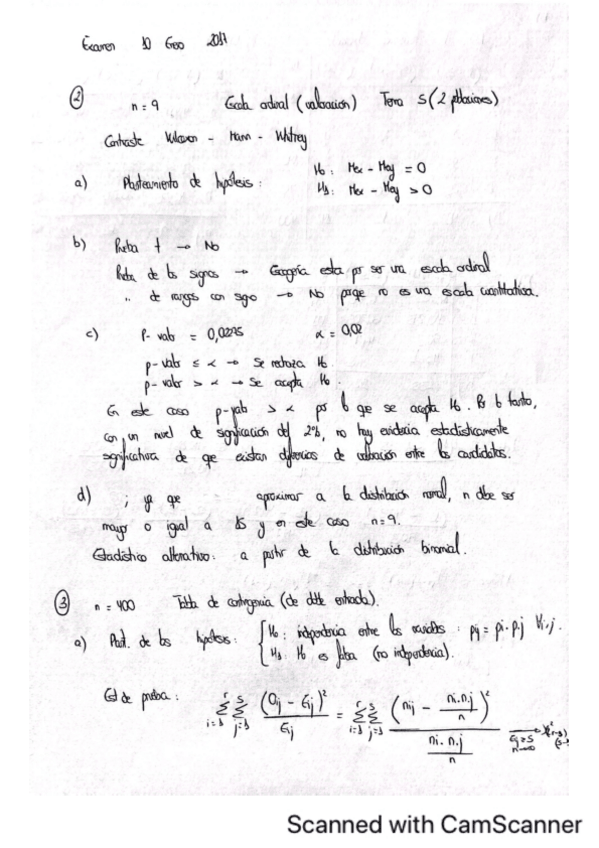 Examen 10 Ene 2017
② n = 9 Escala ordinal (valoración) Tema 5 (2 poblaciones)
Contraste Wilcoxon - Mann - Whitney
a) Planteamiento de hipótesis: H₀: Mex - Mey = 0
H₁: Mex - Mey > 0
b) Prueba t → No
Prueba de los signos → Escogería esta por ser una escala ordinal
" de rangos con signo → No porque no es una escala cuantitativa.
c) P-valor = 0,0295 α = 0,02
p-valor ≤ α → Se rechaza H₀
p-valor > α → Se acepta H₀.
En este caso p-valor > α por lo que se acepta H₀. Por lo tanto,
con un nivel de significación del 2%, no hay evidencia estadísticamente
significativa de que existan diferencias de valoración entre los candidatos.
d) ; ya que aproximar a la distribución normal, n debe ser
mayor o igual a 15 y en este caso n = 9.
Estadístico alternativo: a partir de la distribución binomial.
③ n = 400 Tabla de contingencia (de doble entrada).
a) Plant. de las hipótesis: { H₀: independencia entre las variables: pij = pi· p·j ∀i,j.
H₁: H₀ es falsa (no independencia).
Est de prueba: Σ(i=1, r) Σ(j=1, s) (Oij - Eij)² / Eij = Σ(i=1, r) Σ(j=1, s) (nij - ni· n·j / n)² / (ni· n·j / n)
Scanned with CamScanner